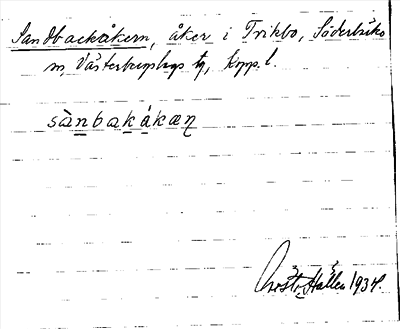 Sandbackåkern, åker i Trikbo, Söderbärke
sn, Västerbergslags tg, Kopp. l.
sànbakåkæn
Hallen 1934.